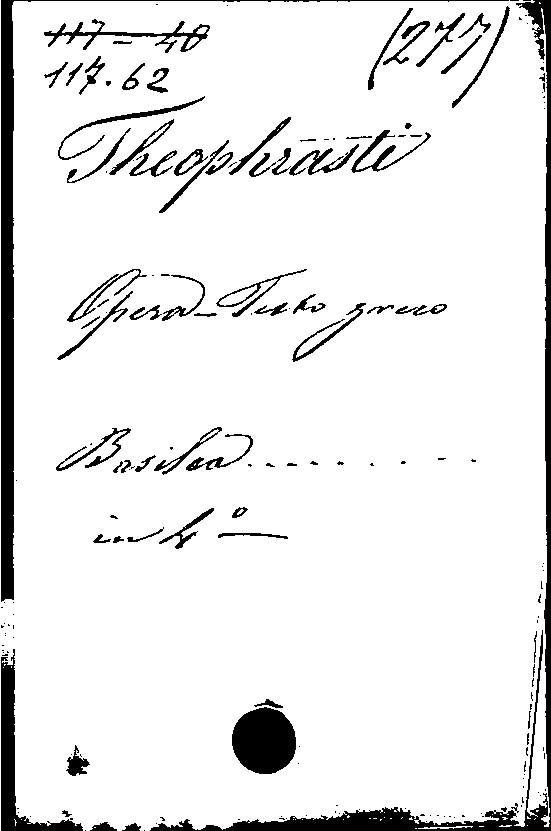 117 - 40 (277)
117.62
Theophrasti
Opera - Testo greco
Basilea ..........
in 4º —